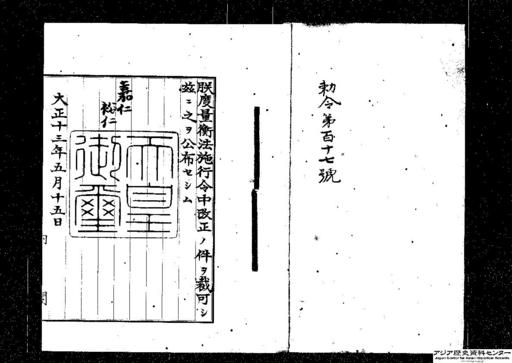 勅令第百十七號
朕度量衡法施行令中改正ノ件ヲ裁可シ
茲ニ之ヲ公布セシム
嘉仁
裕仁
天皇御璽
大正十三年五月十五日
アジア歴史資料センター
Japan Center for Asian Historical Records